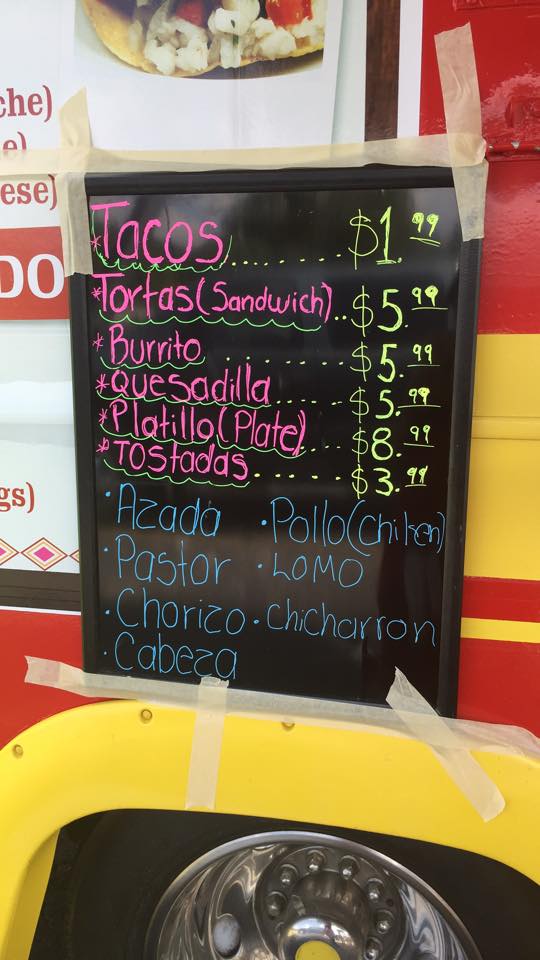 che)
e)
ese)
DO
gs)
*Tacos...... $1.99
*Tortas(Sandwich).. $5.99
*Burrito ...... $5.99
*Quesadilla..... $5.99
*Platillo(Plate).... $8.99
*Tostadas...... $3.99
·Azada ·Pollo(Chiken)
·Pastor ·Lomo
·Chorizo ·Chicharron
·Cabeza